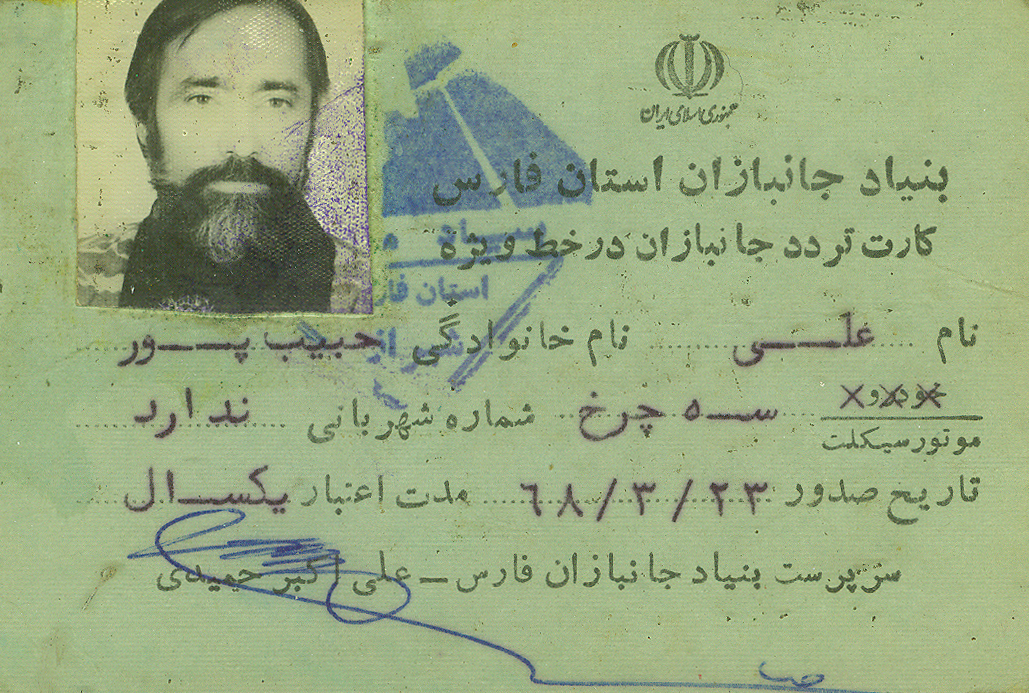 جمهوری اسلامی ایران
بنیاد جانبازان استان فارس
کارت تردد جانبازان در خط ویژه
نام علی نام خانوادگی حبیب پور
خودرو xxx
موتور سیکلت سه چرخ شماره شهربانی ندارد
تاریخ صدور ٦٨/٣/٢٣ مدت اعتبار یکسال
سرپرست بنیاد جانبازان فارس - علی اکبر حمیدی
استان فارس